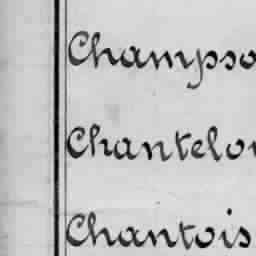 Champso
Chantelou
Chantois